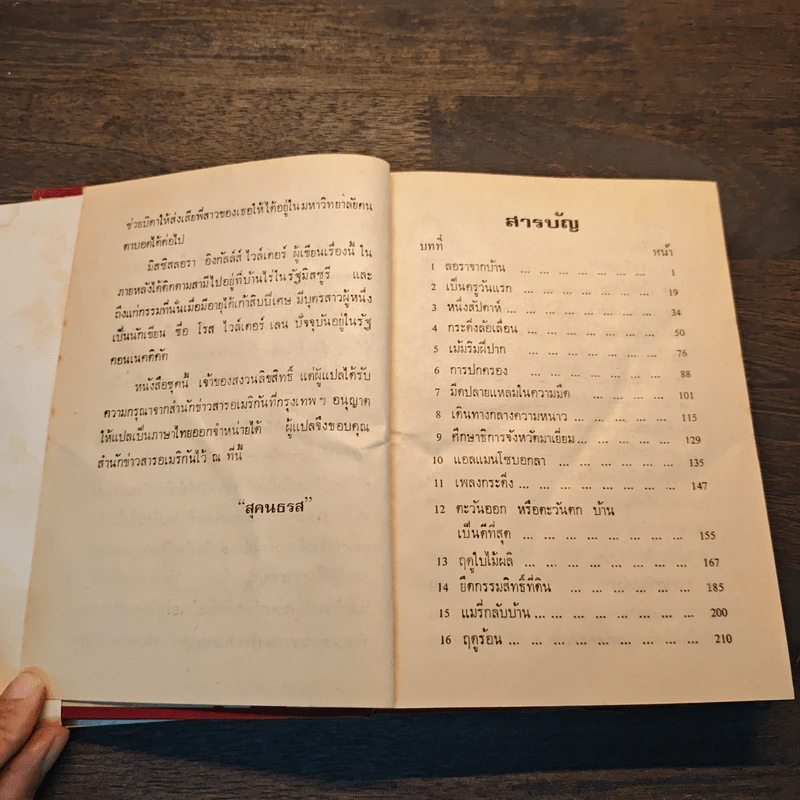 ช่วยบิดาให้ส่งเสียพี่สาวของเธอให้ได้อยู่ในมหาวิทยาลัยคน
ตาบอดได้ต่อไป
มิสซิสลอรา อิงกัลล์ส์ ไวล์เดอร์ ผู้เขียนเรื่องนี้ ใน
ภายหลังได้ติดตามสามีไปอยู่ที่บ้านไร่ในรัฐมิสซูรี และ
ถึงแก่กรรมที่นั่นเมื่อมีอายุได้เก้าสิบปีเศษ มีบุตรสาวผู้หนึ่ง
เป็นนักเขียน ชื่อ โรส ไวล์เดอร์ เลน ปัจจุบันอยู่ในรัฐ
คอนเนคติคัต
หนังสือชุดนี้ เจ้าของสงวนลิขสิทธิ์ แต่ผู้แปลได้รับ
ความกรุณาจากสำนักข่าวสารอเมริกันที่กรุงเทพฯ อนุญาต
ให้แปลเป็นภาษาไทยออกจำหน่ายได้ ผู้แปลจึงขอบคุณ
สำนักข่าวสารอเมริกันไว้ ณ ที่นี้
“สุคนธรส”
สารบัญ
บทที่ หน้า
1 ลอราจากบ้าน ... ... ... ... ... ... 1
2 เป็นครูวันแรก ... ... ... ... ... ... 19
3 หนึ่งสัปดาห์ ... ... ... ... ... ... ... 34
4 กระดิ่งล้อเลื่อน ... ... ... ... ... ... 50
5 เม้มริมฝีปาก ... ... ... ... ... ... 76
6 การปกครอง ... ... ... ... ... ... 88
7 มีดปลายแหลมในความมืด ... ... ... ... 101
8 เดินทางกลางความหนาว ... ... ... ... ... 115
9 ศึกษาธิการจังหวัดมาเยี่ยม ... ... ... ... ... 129
10 แอลแมนโซบอกลา ... ... ... ... ... 135
11 เพลงกระดิ่ง ... ... ... ... ... ... ... 147
12 ตะวันออก หรือตะวันตก บ้าน
เป็นดีที่สุด ... ... ... ... ... ... ... 155
13 ฤดูใบไม้ผลิ ... ... ... ... ... ... ... 167
14 ยึดกรรมสิทธิ์ที่ดิน ... ... ... ... ... ... 185
15 แมรี่กลับบ้าน ... ... ... ... ... ... ... 200
16 ฤดูร้อน ... ... ... ... ... ... ... ... 210